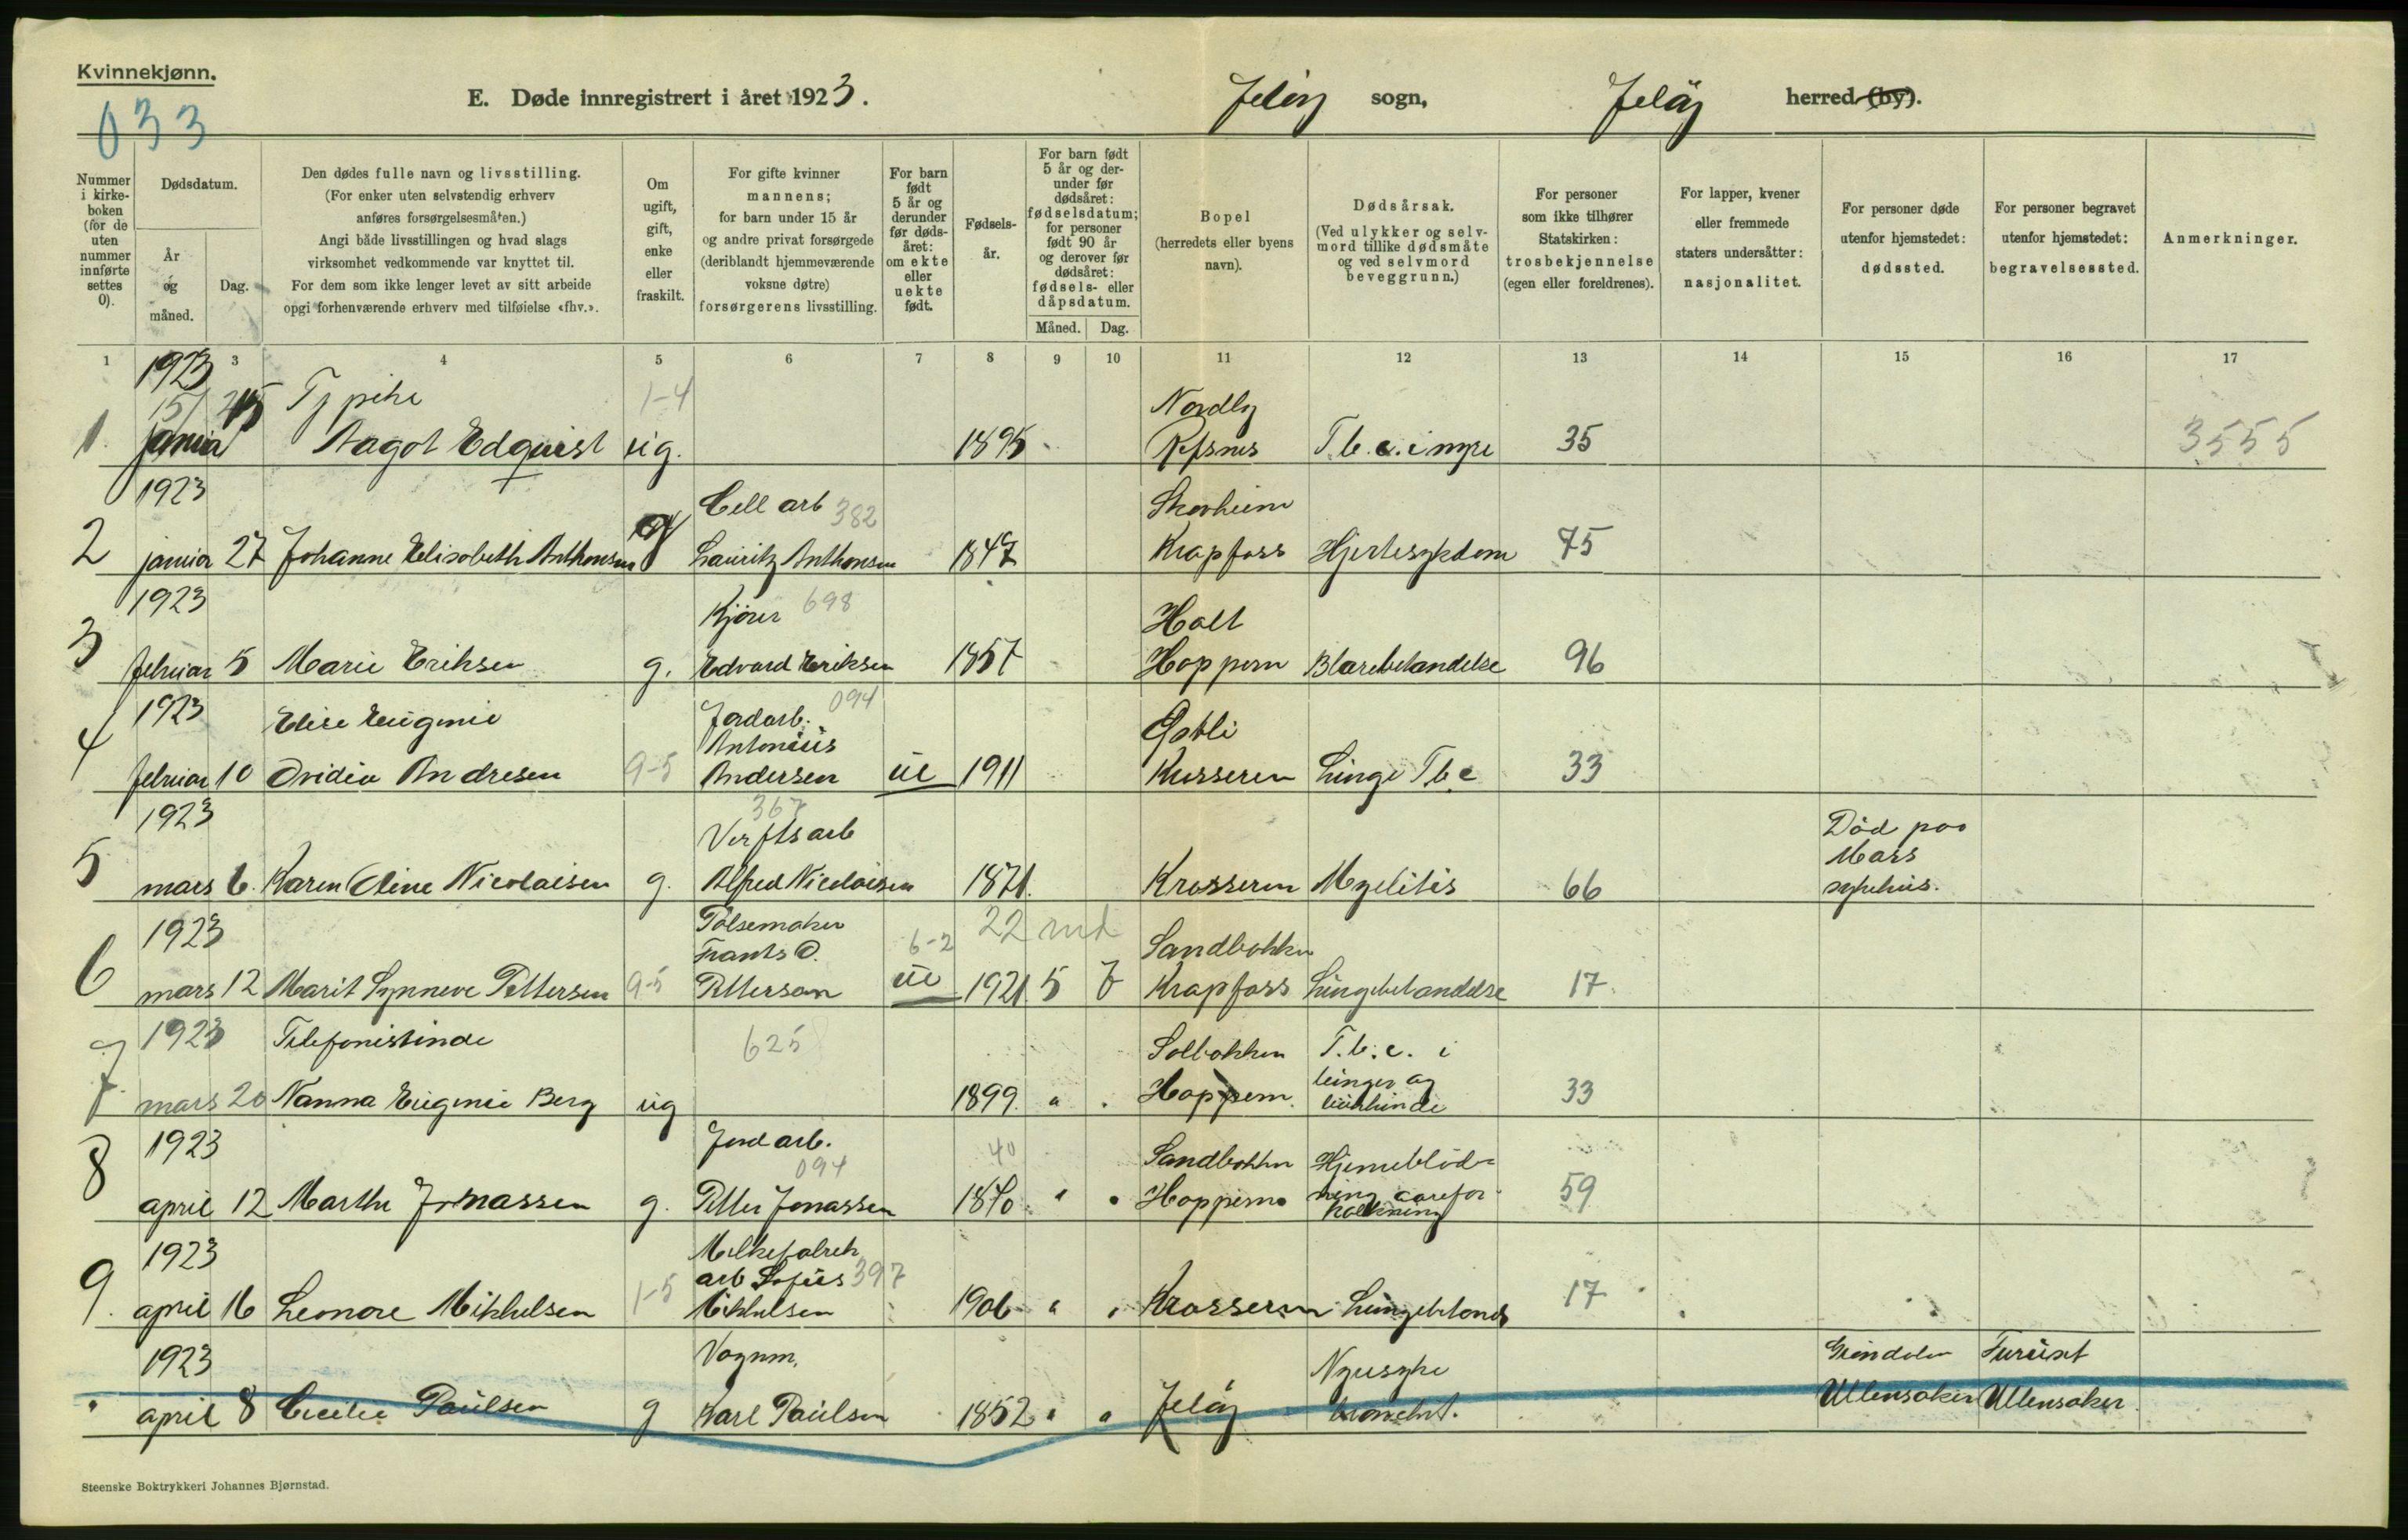 Kvinnekjønn.
033
E. Døde innregistrert i året 1923.
Jeløy sogn,
Jeløy herred (by).
Nummer i kirke-boken (for de uten nummer innførte settes 0).
Dødsdatum.
År og måned.
Dag.
Den dødes fulle navn og livsstilling.
(For enker uten selvstendig erhverv
anføres forsørgelsesmåten.)
Angi både livsstillingen og hvad slags
virksomhet vedkommende var knyttet til.
For dem som ikke lenger levet av sitt arbeide
opgi forhenværende erhverv med tilføielse «fhv.».
Om ugift, gift, enke eller fraskilt.
For gifte kvinner
mannens;
for barn under 15 år
og andre privat forsørgede
(deriblandt hjemmeværende
voksne døtre)
forsørgerens livsstilling.
For barn født 5 år og derunder før døds-året: om ekte eller uekte født.
Fødsels-år.
For barn født 5 år og der-under før dødsåret: fødselsdatum; for personer født 90 år og derover før dødsåret: fødsels- eller dåpsdatum.
Måned.
Dag.
Bopel
(herredets eller byens navn).
Dødsårsak.
(Ved ulykker og selv-mord tillike dødsmåte og ved selvmord beveggrunn.)
For personer
som ikke tilhører
Statskirken:
trosbekjennelse
(egen eller foreldrenes).
For lapper, kvener
eller fremmede
staters undersåtter:
nasjonalitet.
For personer døde
utenfor hjemstedet:
dødssted.
For personer begravet
utenfor hjemstedet:
begravelsessted.
Anmerkninger.
1 3 4 5 6 7 8 9 10 11 12 13 14 15 16 17
1923 Tj pike 1-4 Nordly
1. januar Aagot Edquist ug. 1895 Refsnes T.b.c. i nyre 35 3555
1923 Cell arb 382 Skovheim
2 januar 27 Johanne Elisabeth Anthonsen g Lauritz Anthonsen 1847 Krapfoss Hjertesykdom 75
1923 Kjører 698 Holt
3 februar 5 Marie Eriksen g. Edvard Eriksen 1857 Hoppern Blærebetændelse 96
1923 Elise Eugenie Jordarb. 094
Antonius
4 februar 10 Ovidia Andresen 9-5 Andersen ue 1911 Krosseren Lunge Tbc 33
1923 367
Verftsarb Död paa
Moss
5 mars 6. Karen Oline Nicolaisen g. Alfred Nicolaisen 1871. Krosseren Myelitis 66 sykehus.
1923 Pölsemaker 22 md
Frants O. 6-2 Sandbakken
6 mars 12 Marit Synneve Pettersen 9-5 Petterson ue 1921 5 7 Krapfoss Lungebetændelse 17
1923 Telefonistinde 625 Solbakken T.b.c. i
lunger og
7. mars 20 Nanna Eugenie Berg ug 1899 Hoppern 33
1923 Jordarb. 094 40 Sandbakken Hjerneblöd-
8 april 12 Marthe Jonassen g. Petter Jonassen 1840 Hoppern ning aarefor-
kalkning 59
1923 Melkefabrik
arb Sofus 397
9. april 16 Leonore Mikkelsen 1-5 Mikkelsen 1906 Krosseren Lungebetænd 17
1923 Vognm. Nyresyke Furuset
april 8 Cecilie Paulsen g Karl Paulsen 1852 Jeløy Ullensaker Ullensaker
Steenske Boktrykkeri Johannes Bjørnstad.